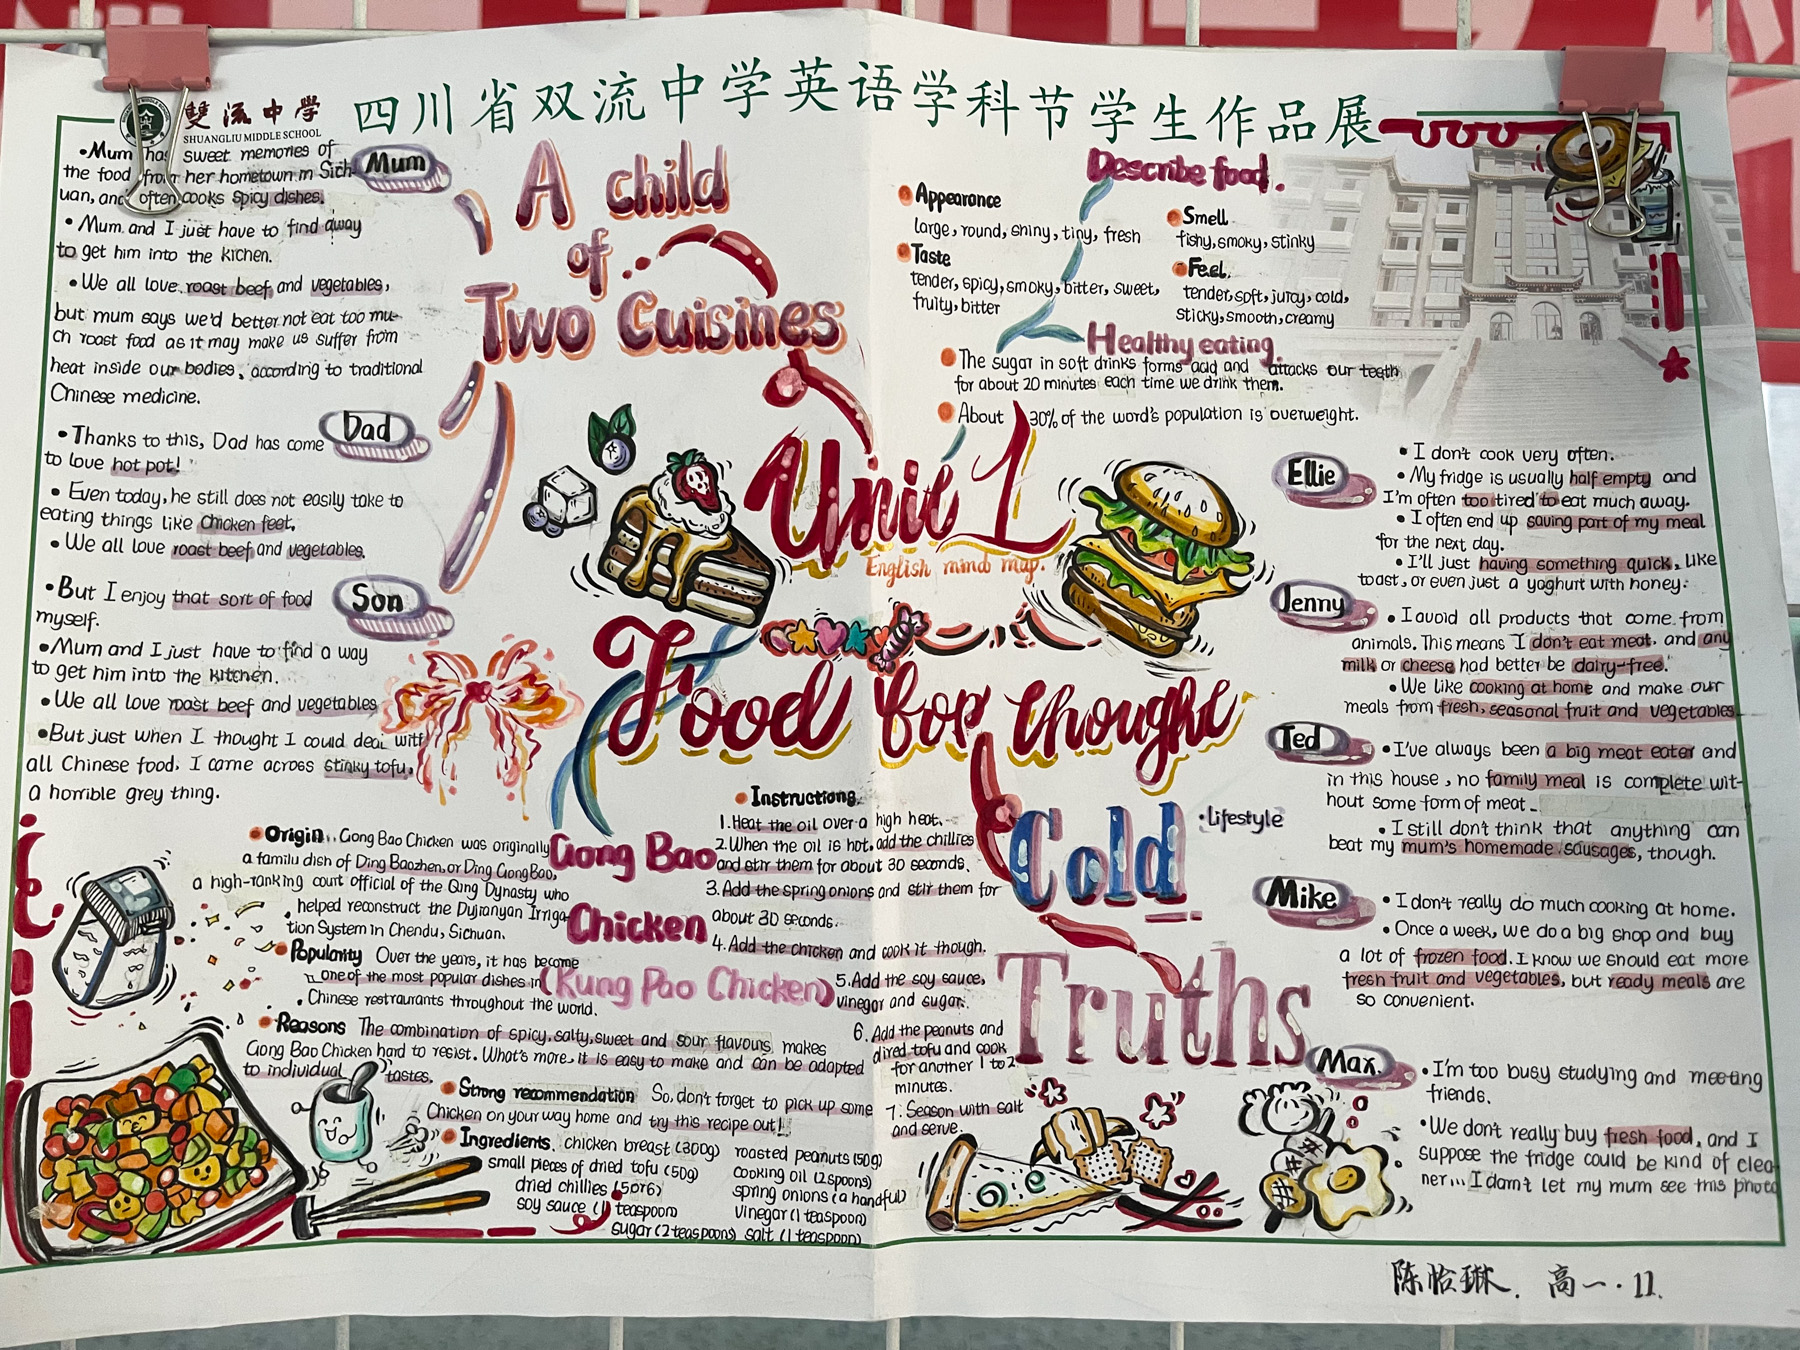 四川省双流中学英语学科节学生作品展
雙流中學
SHUANGLIU MIDDLE SCHOOL
A child
of
Two Cuisines
Mum
•Mum has sweet memories of
the food from her hometown in Sich-
uan, and often cooks spicy dishes.
•Mum and I just have to find away
to get him into the kitchen.
•We all love roast beef and vegetables,
but mum says we'd better not eat too mu-
ch roast food as it may make us suffer from
heat inside our bodies, according to traditional
Chinese medicine.
Dad
•Thanks to this, Dad has come
to love hot pot!
•Even today, he still does not easily take to
eating things like chicken feet.
•We all love roast beef and vegetables.
Son
•But I enjoy that sort of food
myself.
•Mum and I just have to find a way
to get him into the kitchen.
•We all love roast beef and vegetables
•But just when I thought I could deal with
all Chinese food, I came across stinky tofu,
a horrible grey thing.
Describe food.
Appearance
large, round, shiny, tiny, fresh
Taste
tender, spicy, smoky, bitter, sweet,
fruity, bitter
Smell
fishy, smoky, stinky
Feel.
tender, soft, juicy, cold,
sticky, smooth, creamy
Healthy eating.
The sugar in soft drinks forms acid and attacks our teeth
for about 20 minutes each time we drink them.
About 30% of the word's population is overweight.
Unit 1
English mind map.
Food for thought
Gong Bao
Chicken
(Kung Pao Chicken)
Origin. Gong Bao Chicken was originally
a familu dish of Ding Baozhen, or Ding GongBao,
a high-ranking court official of the Qing Dynasty who
helped reconstruct the Dujianyan Irriga-
tion System in Chendu, Sichuan.
Popularity Over the years, it has become
one of the most popular dishes in
Chinese restraurants throughout the world.
Reasons The combination of spicy, salty, sweet and sour flavours makes
Gong Bao Chicken hard to resist. What's more, it is easy to make and can be adapted
to individual tastes.
Strong recommendation So, don't forget to pick up some
Chicken on your way home and try this recipe out!
Ingredients. chicken breast (300g)
small pieces of dried tofu (50g)
dried chillies (5or6)
soy sauce (1 teaspoon)
sugar (2 teaspoons)
roasted peanuts (50g)
cooking oil (2 spoons)
spring onions (a handful)
vinegar (1 teaspoon)
salt (1 teaspoon)
Instructions.
1.Heat the oil over a high heat.
2.When the oil is hot, add the chillies
and stir them for about 30 seconds.
3.Add the spring onions and stir them for
about 30 seconds.
4.Add the chicken and cook it though.
5.Add the soy sauce,
vinegar and sugar.
6.Add the peanuts and
dired tofu and cook
for another 1 to 2
minutes.
7.Season with salt
and serve.
Cold
Truths
•Lifestyle
Ellie
•I don't cook very often.
•My fridge is usually half empty and
I'm often too tired to eat much away.
•I often end up saving part of my meal
for the next day.
•I'll just having something quick, like
toast, or even just a yoghurt with honey.
Jenny
•I avoid all products that come from
animals. This means I don't eat meat, and any
milk or cheese had better be dairy-free.
•We like cooking at home and make our
meals from fresh, seasonal fruit and vegetables.
Ted
•I've always been a big meat eater and
in this house, no family meal is complete wit-
hout some form of meat.
•I still don't think that anything can
beat my mum's homemade sausages, though.
Mike
•I don't really do much cooking at home.
•Once a week, we do a big shop and buy
a lot of frozen food. I know we should eat more
fresh fruit and vegetables, but ready meals are
so convenient.
Max.
•I'm too busy studying and meeting
friends.
•We don't really buy fresh food, and I
suppose the fridge could be kind of clea-
ner... I darn't let my mum see this photo
陈怡琳. 高一·11.